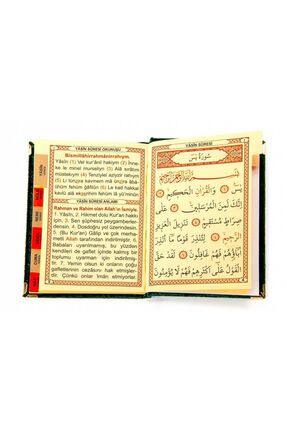 YÂSÎN SÛRESİ OKUNUŞU
Bismillâhirrahmânirrahıym.
Yâsîn (1) Vel kur'ânil hakiym (2) İnne-
ke le minel murselîyn (3) Alâ sırâtım
müstekıym (4) Tenziylel aziyzir rahıym
(5) Li tünzira kavmem mâ ünzira âbâ-
ühüm fehüm ğâfilûn (6) Le kad hakkal
kavlü alâ ekserihim fehüm lâ yü'minûn
YÂSÎN SÛRESİ ANLAMI
Rahman ve Rahim olan Allah'ın İsmiyle.
1. Yâsîn, 2. Hikmet dolu Kur'an hakkı
için, 3. Sen şüphesiz peygamberler-
den, 4. Dosdoğru yol üzerindesin.
5. (Bu Kur'an) Gâlip ve çok mer-
hametli Allah tarafından indirilmiştir.
6. Babaları uyarılmamış, bu yüzden
kendileri de gaflet içinde kalmış bir
toplumu uyarman için indirilmiştir.
7. Yemin olsun ki onların çoğu
gafletlerinin cezâsını hak etmişler-
dir. Çünkü onlar îman etmiyorlar.
YÂSÎN SÛRESİ
سُورَةُ يٰسٓ
بِسْمِ اللّٰهِ الرَّحْمٰنِ الرَّحِيمِ
يٰسٓ وَالْقُرْاٰنِ الْحَكِيمِ
اِنَّكَ لَمِنَ الْمُرْسَلِينَ عَلٰى صِرَاطٍ
مُسْتَقِيمٍ تَنْزِيلَ الْعَزِيزِ
الرَّحِيمِ لِتُنْذِرَ قَوْمًا مَٓا اُنْذِرَ
اٰبَٓاؤُهُمْ فَهُمْ غَافِلُونَ لَقَدْ حَقَّ
الْقَوْلُ عَلٰٓى اَكْثَرِهِمْ فَهُمْ لَا يُؤْمِنُونَ